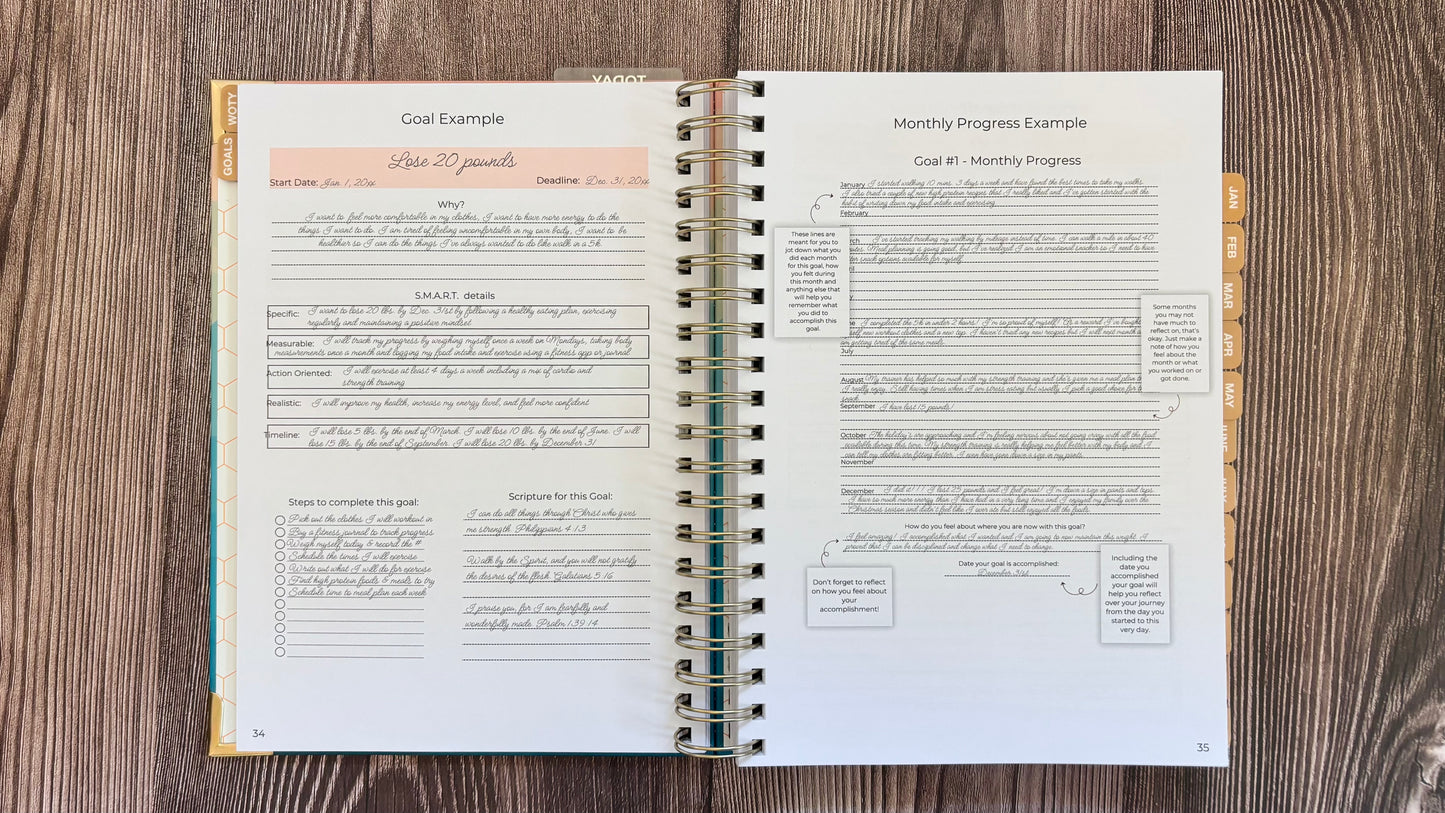 TODAY
WOTY
GOALS
Goal Example
Lose 20 pounds
Start Date: Jan 1, 20xx
Deadline: Dec. 31, 20xx
Why?
I want to feel more comfortable in my clothes, I want to have more energy to do the
things I want to do. I am tired of feeling uncomfortable in my own body, I want to be
healthier so I can do the things I've always wanted to do like walk in a 5k.
S.M.A.R.T. details
Specific: I want to lose 20 lbs. by Dec. 31st by following a healthy eating plan, exercising
regularly and maintaining a positive mindset
Measurable: I will track my progress by weighing myself once a week on Mondays, taking body
measurements once a month and logging my food intake and exercise using a fitness app or journal.
Action Oriented: I will exercise at least 4 days a week including a mix of cardio and
strength training
Realistic: I will improve my health, increase my energy level, and feel more confident
Timeline: I will lose 5 lbs. by the end of March. I will lose 10 lbs. by the end of June. I will
lose 15 lbs. by the end of September. I will lose 20 lbs. by December 31
Steps to complete this goal:
Pick out the clothes I will workout in
Buy a fitness journal to track progress
Weigh myself today & record the #
Schedule the times I will exercise
Write out what I will do for exercise
Find high protein foods & meals to try
Schedule time to meal plan each week
Scripture for this Goal:
I can do all things through Christ who gives
me strength. Philippians 4:13
Walk by the Spirit, and you will not gratify
the desires of the flesh. Galatians 5:16
I praise you, for I am fearfully and
wonderfully made. Psalm 139:14
34
Monthly Progress Example
Goal #1 - Monthly Progress
January I started walking 10 mins. 3 days a week and have found the best times to take my walks.
I also tried a couple of new high protein recipes that I really liked and I've gotten started with the
habit of writing down my food intake and exercising.
February
arch I've started tracking my walking by mileage instead of time. I can walk a mile in about 40
utes. Meal planning is going good, but I've realized I am an emotional snacker so I need to have
ter snack options available for myself.
ril
y
ne I completed the 5k in under 2 hours! I'm so proud of myself! As a reward I've bought
self new workout clothes and a new top. I haven't tried any new recipes but I will next month
am getting tired of the same meals.
July
August My trainer has helped so much with my strength training and she's given me a meal plan
I really enjoy. Still having times when I am stress eating but usually I pick a good choice for
snack.
September I have lost 15 pounds!
October The holiday's are approaching and I'm feeling nervous about not going crazy with all the food
available during this time. My strength training is really helping me feel better with my body and I
can tell my clothes are fitting better. I even have gone down a size in my pants.
November
December I did it!!! I lost 23 pounds and I feel great! I'm down a size in pants and tops.
I have so much more energy than I have had in a very long time and I enjoyed my family over the
Christmas season and didn't feel like I over ate but still enjoyed all the foods.
How do you feel about where you are now with this goal?
I feel amazing! I accomplished what I wanted and I am going to now maintain this weight. I
proved that I can be disciplined and change what I need to change.
Date your goal is accomplished:
December 31st
These lines are
meant for you to
jot down what you
did each month
for this goal, how
you felt during
this month and
anything else that
will help you
remember what
you did to
accomplish this
goal.
Some months
you may not
have much to
reflect on, that's
okay. Just make a
note of how you
feel about the
month or what
you worked on or
got done.
Don't forget to reflect
on how you feel about
your
accomplishment!
Including the
date you
accomplished
your goal will
help you reflect
over your journey
from the day you
started to this
very day.
35
JAN
FEB
MAR
APR
MAY
JUNE